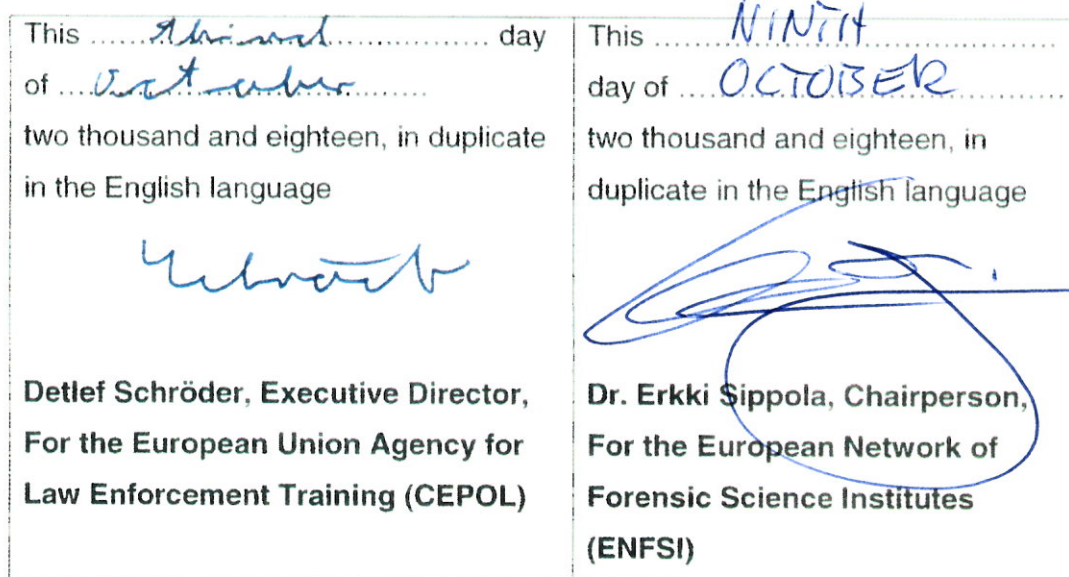 This ...... third ................. day
of .... October ................
two thousand and eighteen, in duplicate
in the English language
Detlef Schröder, Executive Director,
For the European Union Agency for
Law Enforcement Training (CEPOL)
This ...... NINTH ..................
day of .... OCTOBER ..............
two thousand and eighteen, in
duplicate in the English language
Dr. Erkki Sippola, Chairperson,
For the European Network of
Forensic Science Institutes
(ENFSI)